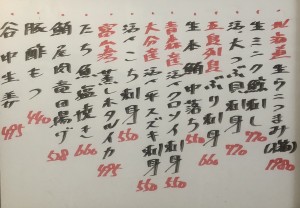 北海産生ウニつまみ(塩)1980
生ミンク鯨刺し 770
活、大つぶ貝刺身 770
五島列島 生本鮪中落ち 660
青森産活〆クロソイ刺身 550
大分産活〆平スズキ刺身 550
活〆こち刺身 550
富山産蒸しホタルイカ 495
たち魚塩焼き 660
鮪尾肉竜田揚げ 528
豚酢もつ 440
谷中生姜 495